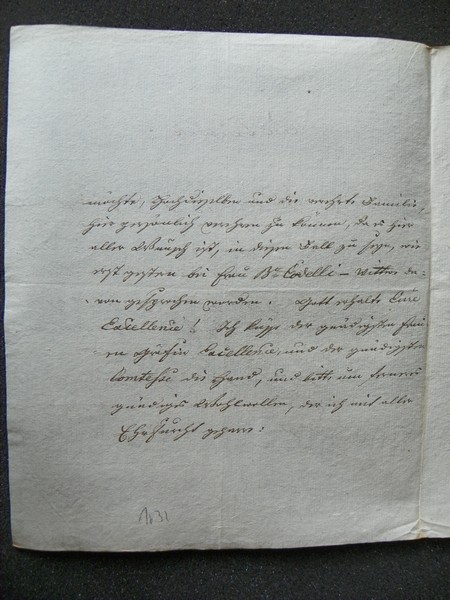 möchte, Hochdieselben und die verehrte Familie,
hier persönlich verehren zu können, da es hier
aller Wunsch ist, in diesem Fall zu seyn, wie
erst gestern bei Frau Bn Codelli – Wittwe da-
von gesprochen worden. Gott erhalte Eure
Excellence! Ich küsse der gnädigsten Frau
en Gräfin Excellence, und der gnädigsten
Comtesse die Hand, und bitte um ferneres
gnädiges Wohlwollen, der ich mit aller
Ehrfurcht geharre:
1831